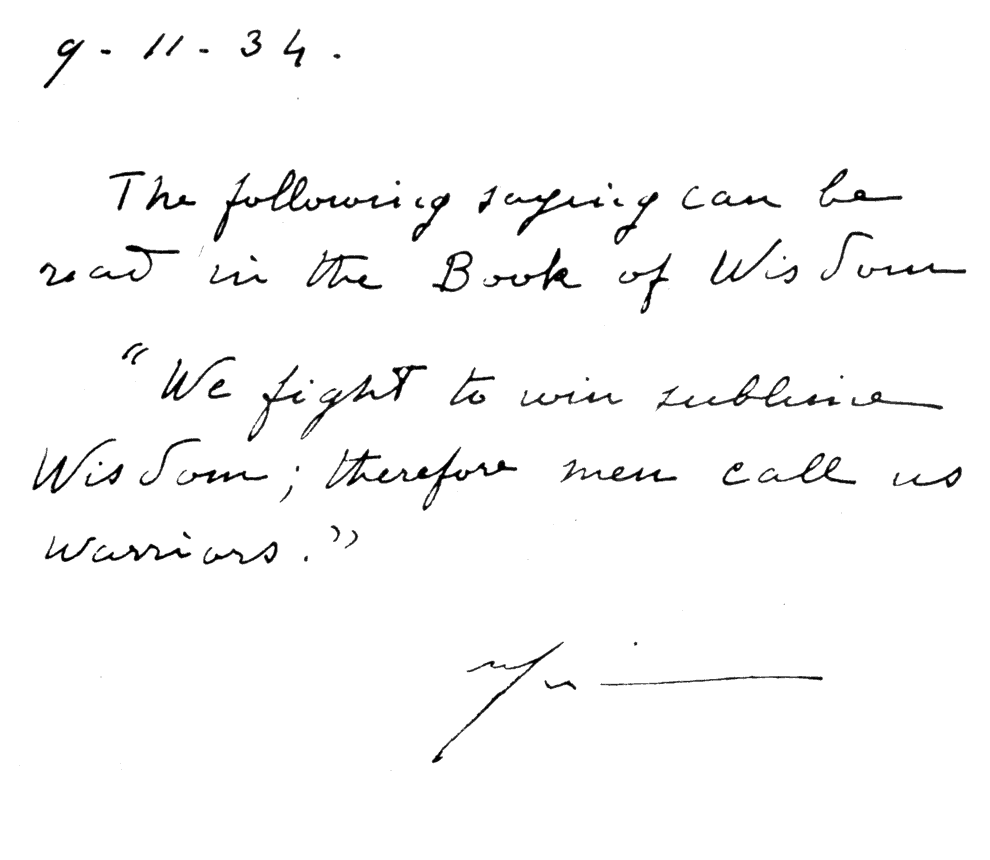 9-11-34.
The following saying can be
read in the Book of Wisdom
"We fight to win sublime
Wisdom; therefore men call us
warriors."